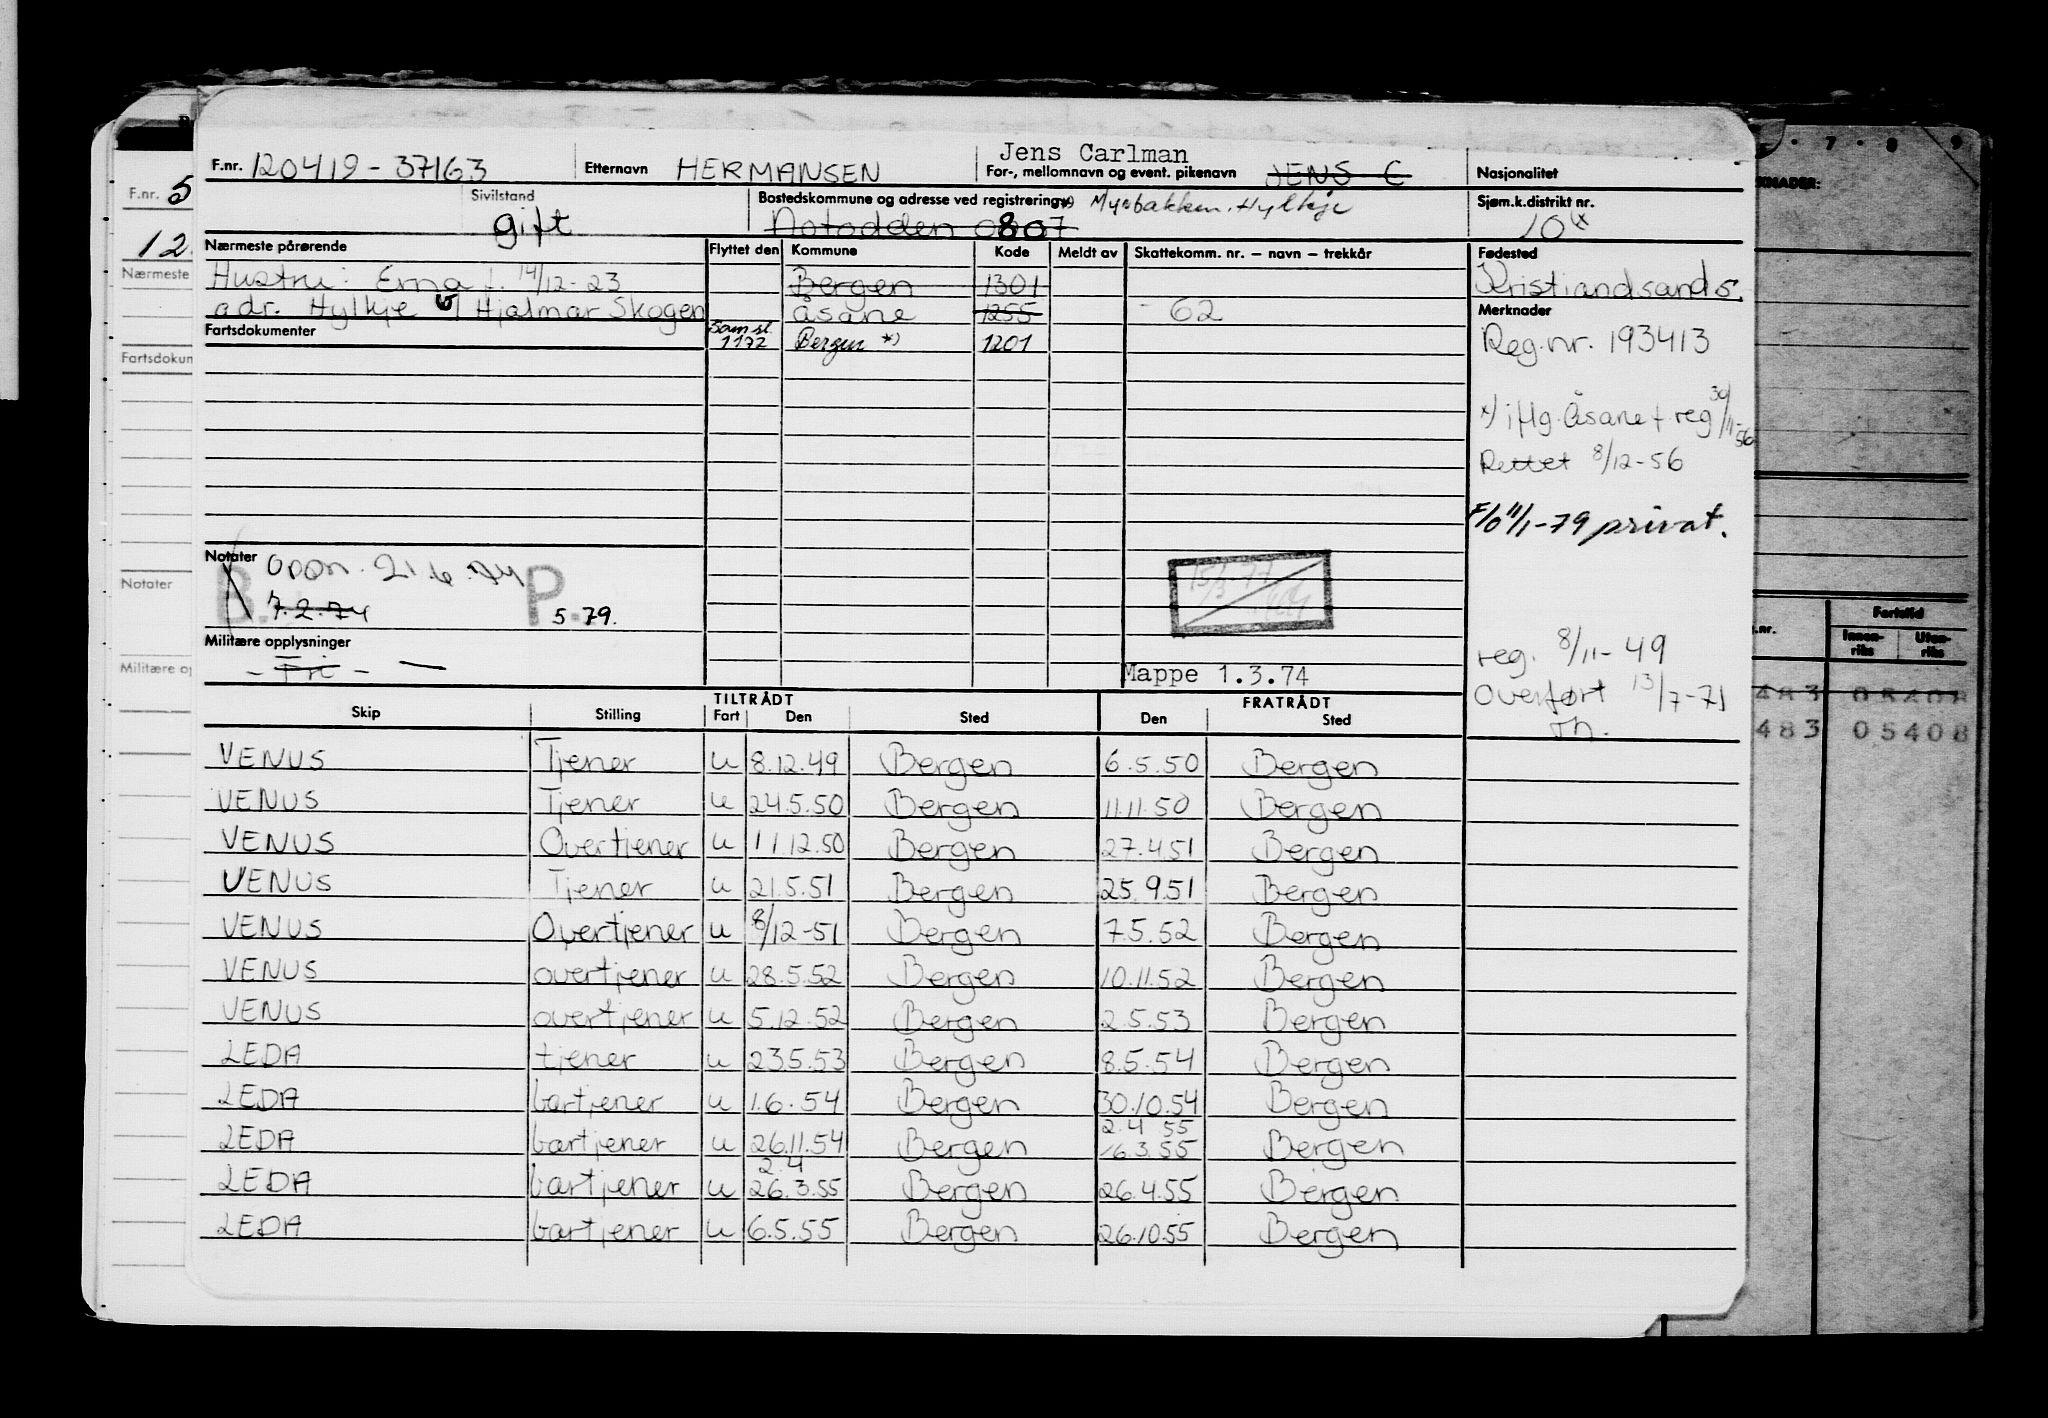 F.nr. 120419-37163 Etternavn HERMANSEN Jens Carlman
For-, mellomnavn og event. pikenavn JENS C Nasjonalitet
Sivilstand gift
Bostedskommune og adresse ved registrering *) Myrbakken, Hylkje
Notodden 0807
Sjøm.k.distrikt nr.
10
Nærmeste pårørende Flyttet den Kommune Kode Meldt av Skattekomm. nr. – navn – trekkår Fødested
Hustru: Erna f. 14/12-23 Bergen 1301 Kristiandsand S.
adr. Hylkje Hjalmar Skogen Åsane 1255 - 62 Merknader
Fartsdokumenter Sam.sl. 1172 Bergen *) 1201
Reg.nr. 193413
x) iflg. Åsane f reg 30/11-56
Rettet 8/12-56
F/0 11/1-79 privat.
Notater Oppn. 21.6.74
7.2.74 P. 5 79.
B.
15/3-77
Militære opplysninger
- Fri - —
Mappe 1.3.74
reg. 8/11-49
Overført 13/7-71
Th.
TILTRÅDT FRATRÅDT
Skip Stilling Fart Den Sted Den Sted
VENUS Tjener u 8.12.49 Bergen 6.5.50 Bergen
VENUS Tjener u 24.5.50 Bergen 11.11.50 Bergen
VENUS Overtjener u 11.12.50 Bergen 27.4.51 Bergen
VENUS Tjener u 21.5.51 Bergen 25.9.51 Bergen
VENUS Overtjener u 8/12-51 Bergen 7.5.52 Bergen
VENUS overtjener u 28.5.52 Bergen 10.11.52 Bergen
VENUS overtjener u 5.12.52 Bergen 2.5.53 Bergen
LEDA tjener u 23.5.53 Bergen 8.5.54 Bergen
LEDA bartjener u 1.6.54 Bergen 30.10.54 Bergen
2.4 55
LEDA bartjener u 26.11.54 Bergen 16.3.55 Bergen
2.4
LEDA bartjener u 26.3.55 Bergen 26.4.55 Bergen
LEDA bartjener u 6.5.55 Bergen 26.10.55 Bergen
F.nr. 5
12
Nærmeste
Fartsdokun
Notater
Militære op
7 8 9
KNADER:
.nr. Fartstid
Innen-riks Uten-riks
483 05408
483 05408